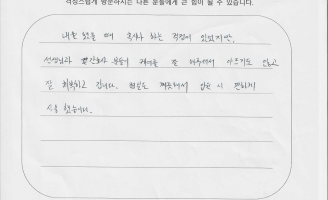 걱정스럽게 방문하시는 다른 분들에게 큰 힘이 될 수 있습니다.
내원 했을 때 혹시나 하는 걱정이 있었지만,
선생님과 간호사 분들이 케어를 잘 해주셔서 아프지도 않고
잘 회복하고 갑니다. 병실도 깨끗해서 입원 시 편하게
사용 했습니다.